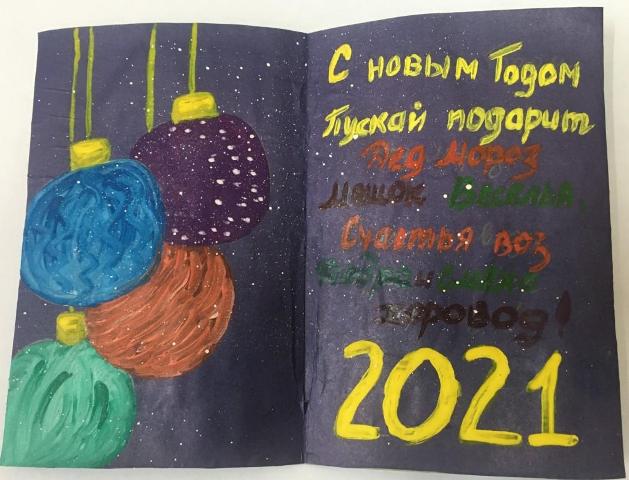 С новым Годом
Пускай подарит
Дед Мороз
Мешок Веселья,
Счастья воз
Добра и смеха
хоровод!
2021